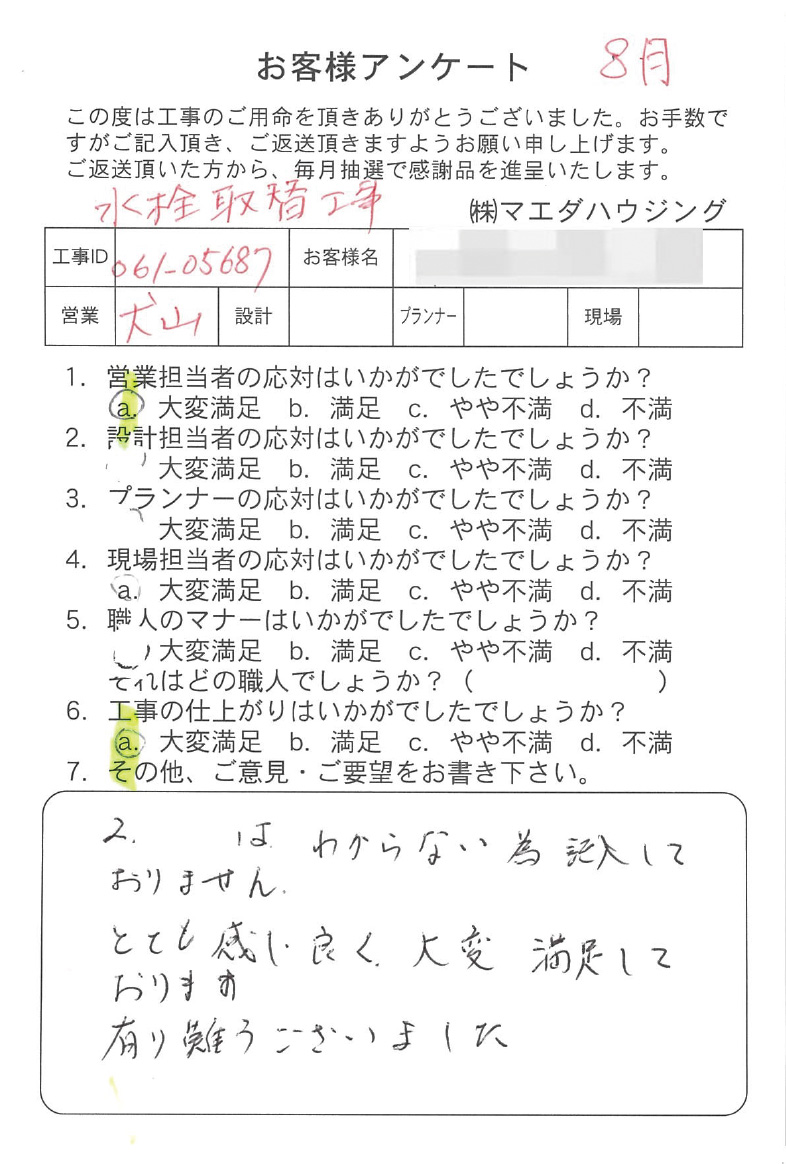 お客様アンケート 8月
この度は工事のご用命を頂きありがとうございました。お手数で
すがご記入頂き、ご返送頂きますようお願い申し上げます。
ご返送頂いた方から、毎月抽選で感謝品を進呈いたします。
水栓取替工事 ㈱マエダハウジング
工事ID 061-05687 お客様名
営業 犬山 設計 プランナー 現場
1. 営業担当者の応対はいかがでしたでしょうか？
a. 大変満足 b. 満足 c. やや不満 d. 不満
2. 設計担当者の応対はいかがでしたでしょうか？
大変満足 b. 満足 c. やや不満 d. 不満
3. プランナーの応対はいかがでしたでしょうか？
大変満足 b. 満足 c. やや不満 d. 不満
4. 現場担当者の応対はいかがでしたでしょうか？
a. 大変満足 b. 満足 c. やや不満 d. 不満
5. 職人のマナーはいかがでしたでしょうか？
大変満足 b. 満足 c. やや不満 d. 不満
それはどの職人でしょうか？（ ）
6. 工事の仕上がりはいかがでしたでしょうか？
a. 大変満足 b. 満足 c. やや不満 d. 不満
7. その他、ご意見・ご要望をお書き下さい。
2. は わからない為 記入して
おりません.
とても感じ良く. 大変 満足して
おります
有り難うございました